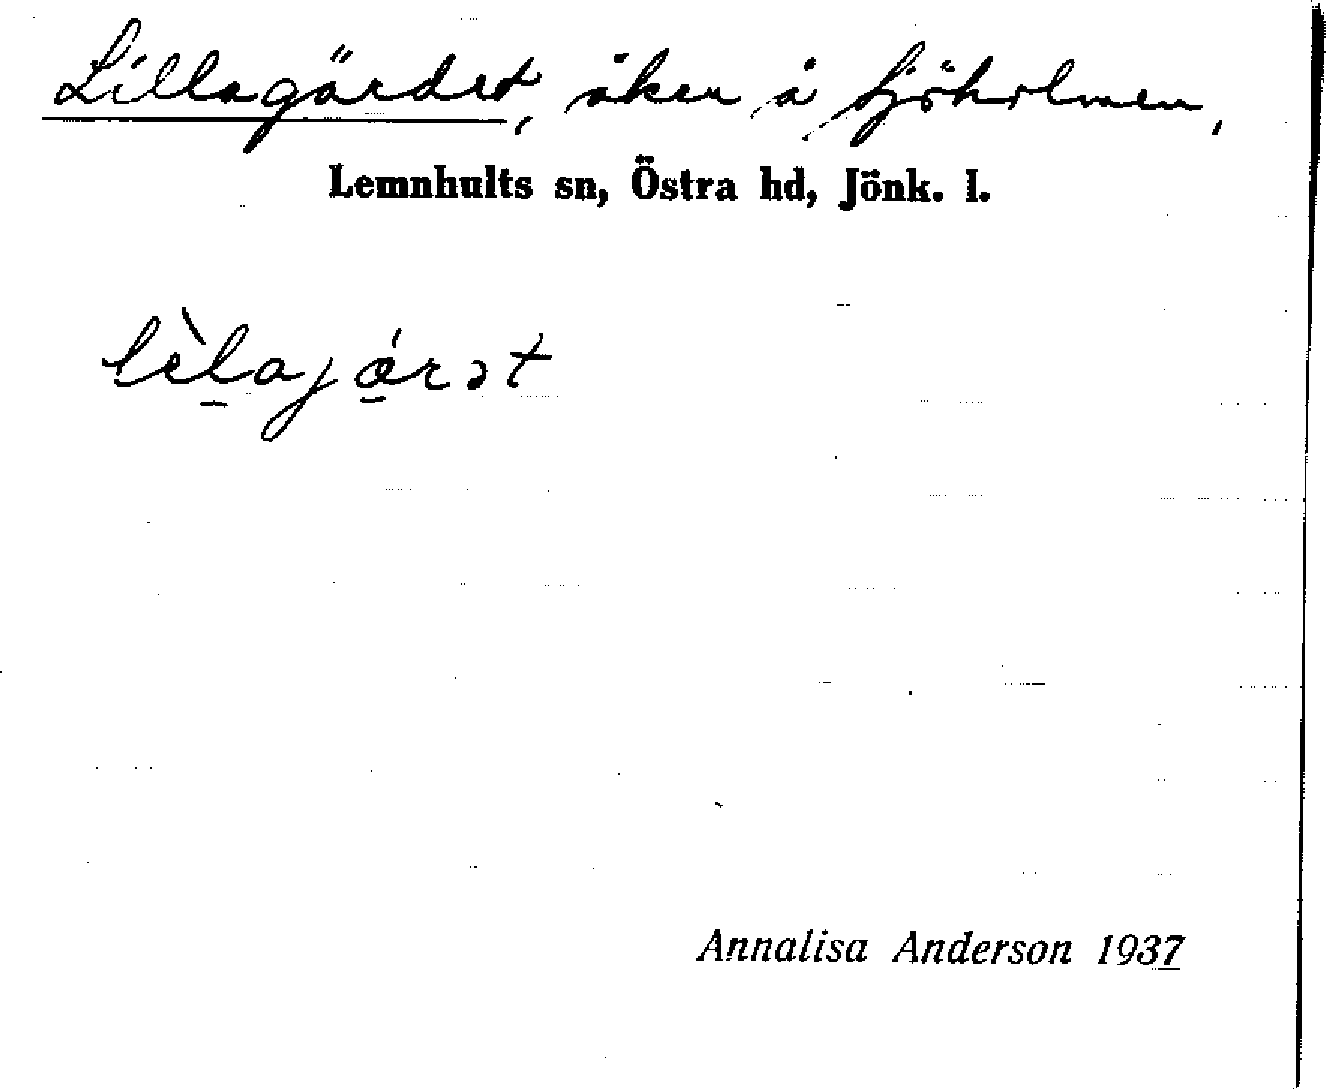 Lillagärdet, åker å Sjöholmen,
Lemnhults sn, Östra hd, Jönk. l.
lìlajárət
Annalisa Anderson 1937